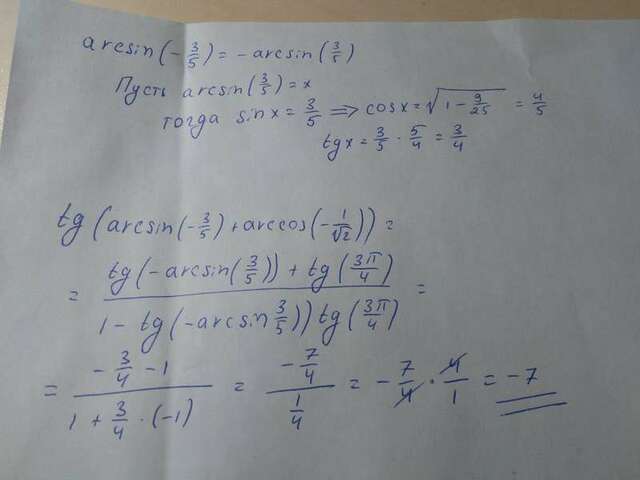 arcsin(-3/5) = -arcsin(3/5)
Пусть arcsin(3/5) = x
тогда sin x = 3/5 => cos x = √(1 - 9/25) = 4/5
tg x = 3/5 · 5/4 = 3/4
tg(arcsin(-3/5) + arccos(-1/√2)) =
= (tg(-arcsin(3/5)) + tg(3π/4)) / (1 - tg(-arcsin 3/5)) tg(3π/4)) =
= (-3/4 - 1) / (1 + 3/4 · (-1)) = (-7/4) / (1/4) = -7/4 · 4/1 = -7